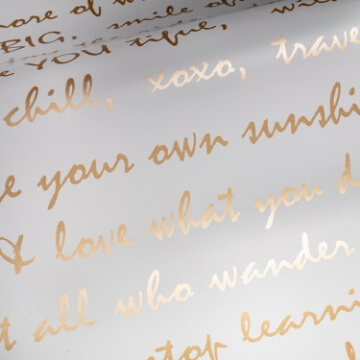 more of w
BIG, smile
e YOU tique, wi
chill, xoxo, trave
e your own sunshi
& love what you d
t all who wander
stop learni